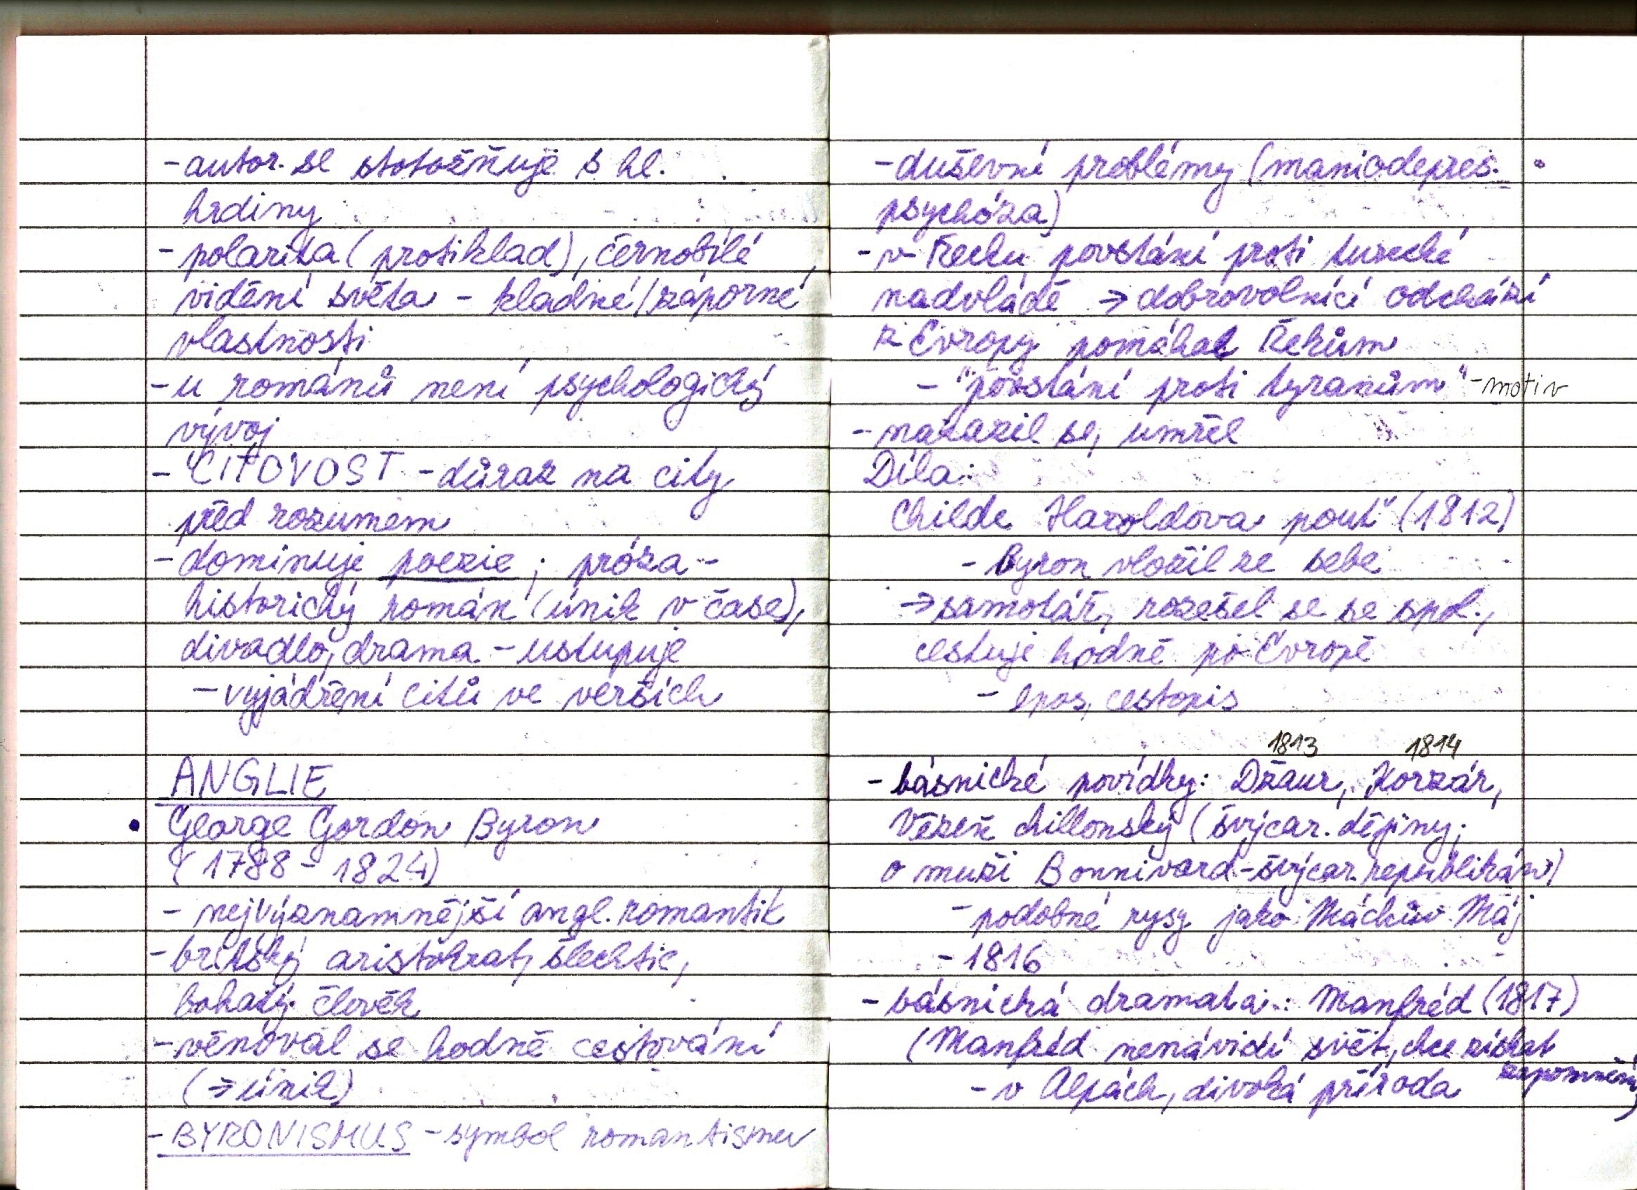 - autor se stotožňuje s hl.
hrdiny
- polarita (protiklad), černobílé
vidění světa - kladné/záporné
vlastnosti
- u románů není psychologický
vývoj
- CITOVOST - důraz na city
před rozumem
- dominuje poezie; próza -
historický román (únik v čase),
divadlo, drama - ustupuje
- vyjádření citů ve verších
ANGLIE
• George Gordon Byron
(1788 - 1824)
- nejvýznamnější angl. romantik
- britský aristokrat, šlechtic,
bohatý člověk
- věnoval se hodně cestování
(→ únik)
- BYRONISMUS - symbol romantismu
- duševní problémy (maniodepres.
psychóza)
- v Řecku povstání proti turecké
nadvládě → dobrovolníci odchází
z Evropy pomáhat Řekům
- "povstání proti tyranům" - motiv
- nakazil se, umřel
Díla:
Childe Haroldova pouť (1812)
- Byron vložil ze sebe
→ samotář, rozešel se se spol.,
cestuje hodně po Evropě
- epos, cestopis
1813 1814
- básnické povídky: Džaur, Korzár,
Vězeň chillonský (švýcar. dějiny;
o muži Bonnivard - švýcar. republikán)
- podobné rysy jako Máchův Máj
- 1816
- básnická dramata: Manfréd (1817)
(Manfréd nenávidí svět, chce získat
zapomnění)
- v Alpách, divoká příroda